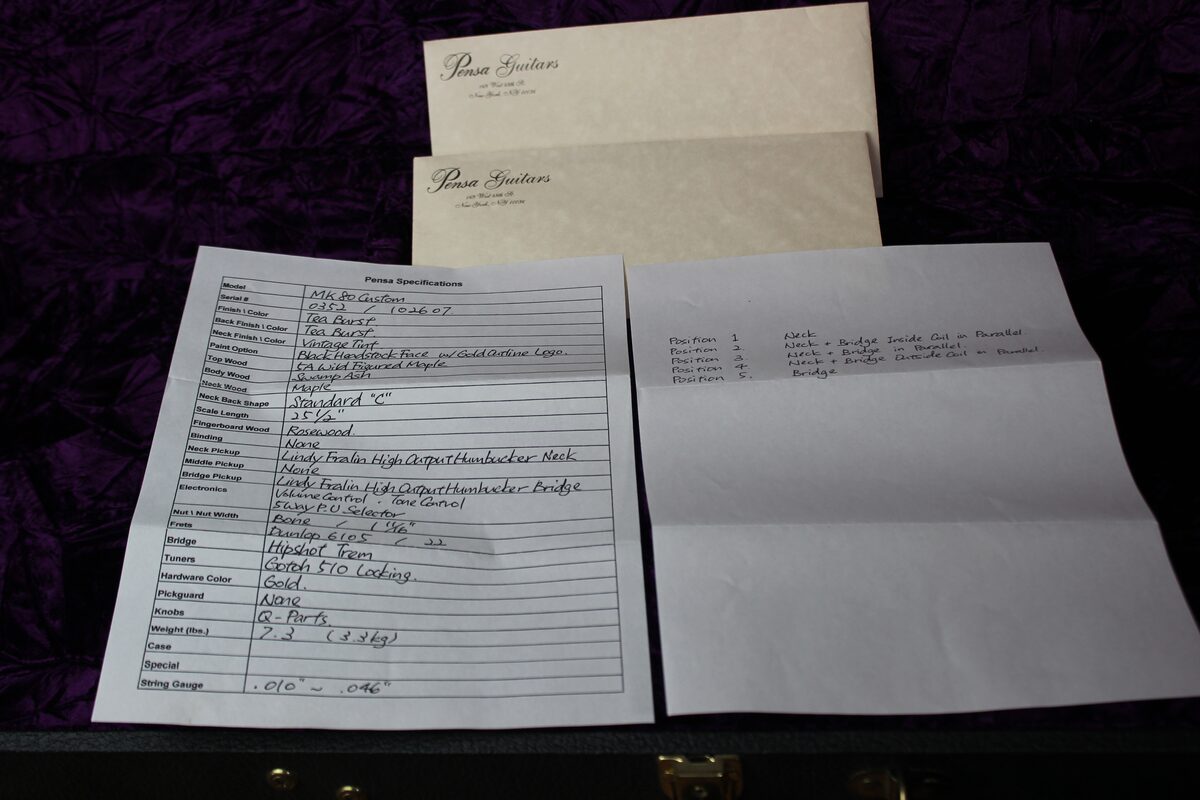 Pensa Guitars
New York, NY
Pensa Guitars
New York, NY
Pensa Specifications
Model MK 80 Custom
Serial # 0352 / 102607
Finish \ Color Tea Burst.
Back Finish \ Color Tea Burst.
Neck Finish \ Color Vintage Tint
Paint Option Black Headstock Face w/ Gold Outline Logo.
Top Wood 5A Wild Figured Maple
Body Wood Swamp Ash
Neck Wood Maple
Neck Back Shape Standard "C"
Scale Length 25 1/2"
Fingerboard Wood Rosewood.
Binding None
Neck Pickup Lindy Fralin High Output Humbucker Neck
Middle Pickup None
Bridge Pickup Lindy Fralin High Output Humbucker Bridge
Electronics Volume Control . Tone Control
5 Way P.U Selector
Nut \ Nut Width Bone / 1 11/16"
Frets Dunlop 6105 / 22
Bridge Hipshot Trem
Tuners Gotoh 510 Locking.
Hardware Color Gold.
Pickguard None
Knobs Q-Parts
Weight (lbs.) 7.3 (3.3kg)
Case
Special
String Gauge .010" ~ .046"
Position 1 Neck
Position 2. Neck + Bridge Inside Coil in Parallel.
Position 3. Neck + Bridge in Parallel.
Position 4. Neck + Bridge Outside Coil in Parallel.
Position 5. Bridge